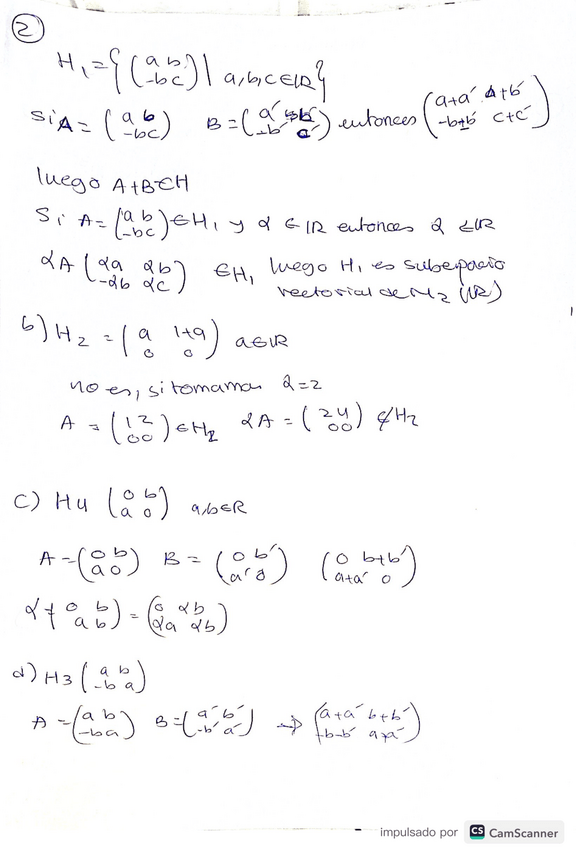 2
H₁ = { ( a b ; -b c ) | a, b, c ∈ ℝ }
Si A = ( a b ; -b c ) B = ( a´ b´ ; -b´ a´ ) entonces ( a+a´ b+b´ ; -b+b´ c+c´ )
luego A+B ∈ H
Si A = ( a b ; -b c ) ∈ H₁ y α ∈ ℝ entonces α ∈ ℝ
αA ( αa αb ; -αb αc ) ∈ H₁ luego H₁ es subespacio
vectorial de M₂ (ℝ)
b) H₂ = ( a 1+a ; 0 0 ) a ∈ ℝ
no es, si tomamos α = 2
A = ( 1 2 ; 0 0 ) ∈ H₂ αA = ( 2 4 ; 0 0 ) ∉ H₂
c) H4 ( 0 b ; a 0 ) a, b ∈ R
A = ( 0 b ; a 0 ) B = ( 0 b´ ; a´ 0 ) ( 0 b+b´ ; a+a´ 0 )
( 0 b ; a b ) = ( 0 αb ; αa αb )
d) H3 ( a b ; -b a )
A = ( a b ; -b a ) B = ( a´ b´ ; -b´ a´ ) → ( a+a´ b+b´ ; -b-b´ a+a´ )
impulsado por CS CamScanner